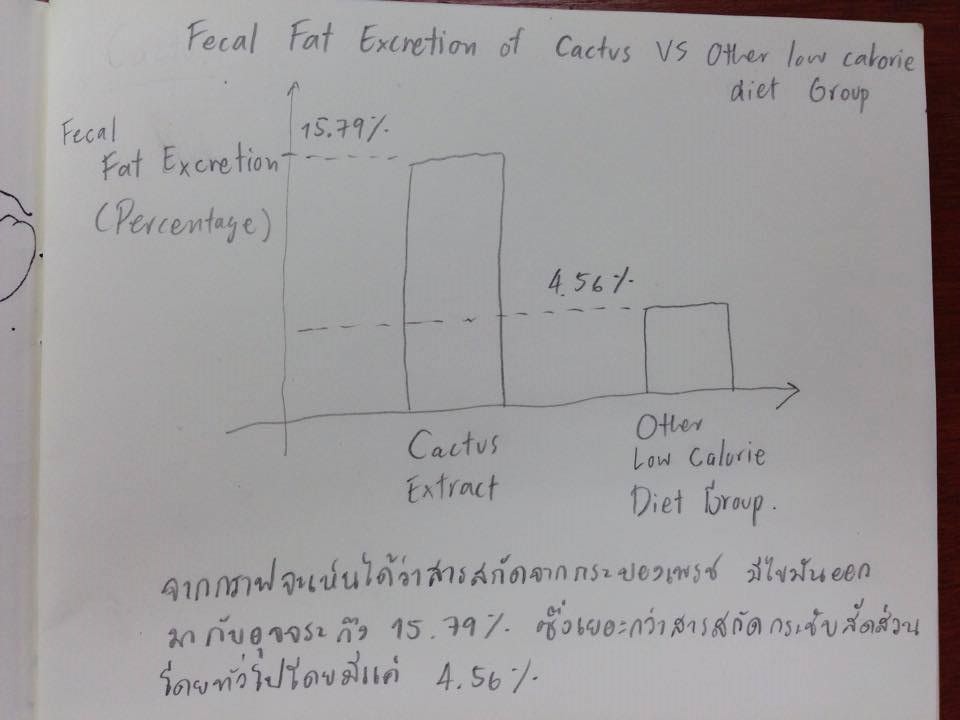 Fecal Fat Excretion of Cactus VS Other low calorie
diet Group
Fecal
Fat Excretion
(Percentage)
15.79%
4.56%
Cactus
Extract
Other
Low Calorie
Diet Group.
จากกราฟจะเห็นได้ว่าสารสกัดจากกระบองเพรช มีไขมันออก
มากับอุจจระถึง 15.79% ซึ่งเยอะกว่าสารสกัดกระชับสัดส่วน
โดยทั่วไปโดยมีแค่ 4.56%